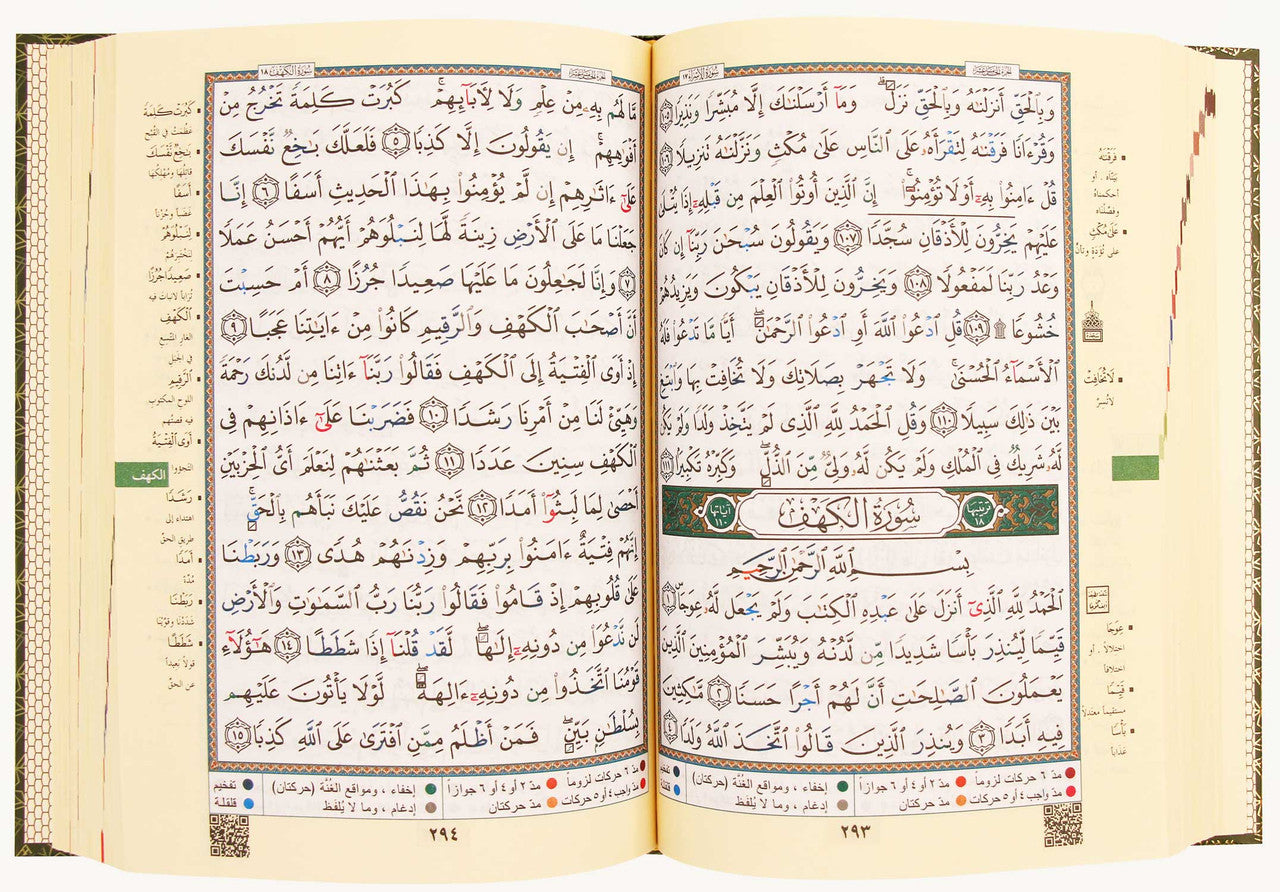 الجزء الخامس عشر
سورة الإسراء ١٧
وَبِٱلْحَقِّ أَنزَلْنَٰهُ وَبِٱلْحَقِّ نَزَلَ وَمَآ أَرْسَلْنَٰكَ إِلَّا مُبَشِّرًا وَنَذِيرًا ١٠٥
وَقُرْءَانًا فَرَقْنَٰهُ لِتَقْرَأَهُۥ عَلَى ٱلنَّاسِ عَلَىٰ مُكْثٍ وَنَزَّلْنَٰهُ تَنزِيلًا ١٠٦
قُلْ ءَامِنُوا۟ بِهِۦٓ أَوْ لَا تُؤْمِنُوٓا۟ إِنَّ ٱلَّذِينَ أُوتُوا۟ ٱلْعِلْمَ مِن قَبْلِهِۦٓ إِذَا يُتْلَىٰ
عَلَيْهِمْ يَخِرُّونَ لِلْأَذْقَانِ سُجَّدًا ١٠٧ وَيَقُولُونَ سُبْحَٰنَ رَبِّنَآ إِن كَانَ
وَعْدُ رَبِّنَا لَمَفْعُولًا ١٠٨ وَيَخِرُّونَ لِلْأَذْقَانِ يَبْكُونَ وَيَزِيدُهُمْ
خُشُوعًا ۩ ١٠٩ قُلِ ٱدْعُوا۟ ٱللَّهَ أَوِ ٱدْعُوا۟ ٱلرَّحْمَٰنَ أَيًّا مَّا تَدْعُوا۟ فَلَهُ
ٱلْأَسْمَآءُ ٱلْحُسْنَىٰ وَلَا تَجْهَرْ بِصَلَاتِكَ وَلَا تُخَافِتْ بِهَا وَٱبْتَغِ
بَيْنَ ذَٰلِكَ سَبِيلًا ١١٠ وَقُلِ ٱلْحَمْدُ لِلَّهِ ٱلَّذِى لَمْ يَتَّخِذْ وَلَدًا وَلَمْ يَكُن
لَّهُۥ شَرِيكٌ فِى ٱلْمُلْكِ وَلَمْ يَكُن لَّهُۥ وَلِىٌّ مِّنَ ٱلذُّلِّ وَكَبِّرْهُ تَكْبِيرًا ١١١
ترتيبها ١٨ سُورَةُ الكَهْف آياتها ١١٠
بِسْمِ ٱللَّهِ ٱلرَّحْمَٰنِ ٱلرَّحِيمِ
ٱلْحَمْدُ لِلَّهِ ٱلَّذِىٓ أَنزَلَ عَلَىٰ عَبْدِهِ ٱلْكِتَٰبَ وَلَمْ يَجْعَل لَّهُۥ عِوَجَا ١
قَيِّمًا لِّيُنذِرَ بَأْسًا شَدِيدًا مِّن لَّدُنْهُ وَيُبَشِّرَ ٱلْمُؤْمِنِينَ ٱلَّذِينَ
يَعْمَلُونَ ٱلصَّٰلِحَٰتِ أَنَّ لَهُمْ أَجْرًا حَسَنًا ٢ مَّٰكِثِينَ
فِيهِ أَبَدًا ٣ وَيُنذِرَ ٱلَّذِينَ قَالُوا۟ ٱتَّخَذَ ٱللَّهُ وَلَدًا ٤
فَرَقْنَٰهُ
بيّنّاه . أو
أحكمناه
وفصّلناه
عَلَىٰ مُكْثٍ
على تُؤَدَةٍ وتأنّ
لَا تُخَافِتْ
لا تُسِرّ
عِوَجَا
اختلالاً . أو
اختلافاً
قَيِّمًا
مستقيماً معتدلاً
بَأْسًا
عذاباً
مدّ ٦ حركات لزوماً مدّ ٢ أو ٤ أو ٦ جوازاً إخفاء ، ومواقع الغُنَّة (حركتان) تفخيم
مدّ واجب ٤ أو ٥ حركات مدّ حركتان إدغام ، وما لا يُلفَظ قلقلة
٢٩٣
الجزء الخامس عشر
سورة الكهف ١٨
مَّا لَهُم بِهِۦ مِنْ عِلْمٍ وَلَا لِـَٔابَآئِهِمْ كَبُرَتْ كَلِمَةً تَخْرُجُ مِنْ
أَفْوَٰهِهِمْ إِن يَقُولُونَ إِلَّا كَذِبًا ٥ فَلَعَلَّكَ بَٰخِعٌ نَّفْسَكَ
عَلَىٰٓ ءَاثَٰرِهِمْ إِن لَّمْ يُؤْمِنُوا۟ بِهَٰذَا ٱلْحَدِيثِ أَسَفًا ٦ إِنَّا
جَعَلْنَا مَا عَلَى ٱلْأَرْضِ زِينَةً لَّهَا لِنَبْلُوَهُمْ أَيُّهُمْ أَحْسَنُ عَمَلًا
٧ وَإِنَّا لَجَٰعِلُونَ مَا عَلَيْهَا صَعِيدًا جُرُزًا ٨ أَمْ حَسِبْتَ
أَنَّ أَصْحَٰبَ ٱلْكَهْفِ وَٱلرَّقِيمِ كَانُوا۟ مِنْ ءَايَٰتِنَا عَجَبًا ٩
إِذْ أَوَى ٱلْفِتْيَةُ إِلَى ٱلْكَهْفِ فَقَالُوا۟ رَبَّنَآ ءَاتِنَا مِن لَّدُنكَ رَحْمَةً
وَهَيِّئْ لَنَا مِنْ أَمْرِنَا رَشَدًا ١٠ فَضَرَبْنَا عَلَىٰٓ ءَاذَانِهِمْ فِى
ٱلْكَهْفِ سِنِينَ عَدَدًا ١١ ثُمَّ بَعَثْنَٰهُمْ لِنَعْلَمَ أَىُّ ٱلْحِزْبَيْنِ
أَحْصَىٰ لِمَا لَبِثُوٓا۟ أَمَدًا ١٢ نَّحْنُ نَقُصُّ عَلَيْكَ نَبَأَهُم بِٱلْحَقِّ
إِنَّهُمْ فِتْيَةٌ ءَامَنُوا۟ بِرَبِّهِمْ وَزِدْنَٰهُمْ هُدًى ١٣ وَرَبَطْنَا
عَلَىٰ قُلُوبِهِمْ إِذْ قَامُوا۟ فَقَالُوا۟ رَبُّنَا رَبُّ ٱلسَّمَٰوَٰتِ وَٱلْأَرْضِ
لَن نَّدْعُوَا۟ مِن دُونِهِۦٓ إِلَٰهًا لَّقَدْ قُلْنَآ إِذًا شَطَطًا ١٤ هَٰٓؤُلَآءِ
قَوْمُنَا ٱتَّخَذُوا۟ مِن دُونِهِۦٓ ءَالِهَةً لَّوْلَا يَأْتُونَ عَلَيْهِم
بِسُلْطَٰنٍۭ بَيِّنٍ فَمَنْ أَظْلَمُ مِمَّنِ ٱفْتَرَىٰ عَلَى ٱللَّهِ كَذِبًا ١٥
كَبُرَتْ كَلِمَةً
عظمت في القُبح
بَٰخِعٌ نَّفْسَكَ
قاتلها ومُهلكها
أَسَفًا
غضباً وحُزناً
لِنَبْلُوَهُمْ
لنختبرهم
صَعِيدًا جُرُزًا
تُراباً لا نبات فيه
ٱلْكَهْفِ
الغار المتّسع
في الجبل
ٱلرَّقِيمِ
اللوح المكتوب
فيه قصتُهم
أَوَى ٱلْفِتْيَةُ
التجؤوا
الكهف
رَشَدًا
اهتداء إلى
طريق الحقّ
أَمَدًا
مُدّة
رَبَطْنَا
شددنا وقوّينا
شَطَطًا
قولاً بعيداً
عن الحقّ
مدّ ٦ حركات لزوماً مدّ ٢ أو ٤ أو ٦ جوازاً إخفاء ، ومواقع الغُنَّة (حركتان) تفخيم
مدّ واجب ٤ أو ٥ حركات مدّ حركتان إدغام ، وما لا يُلفَظ قلقلة
٢٩٤